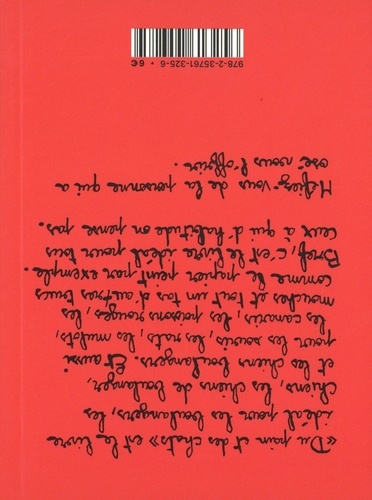 « Du pain et des chats » est le livre
idéal pour les boulangers, les
chiens, les chiens de boulanger,
et les chiens boulangers. Et aussi
pour les souris, les rats, les mulots,
les canaris, les poissons rouges, les
mouches et tout un tas d'autres trucs
comme le papier peint par exemple.
Bref, c'est le livre idéal pour tous
ceux à qui d'habitude on pense pas.
Méfiez-vous de la personne qui a
osé vous l'offrir.
978-2-35761-325-6 • 6 €